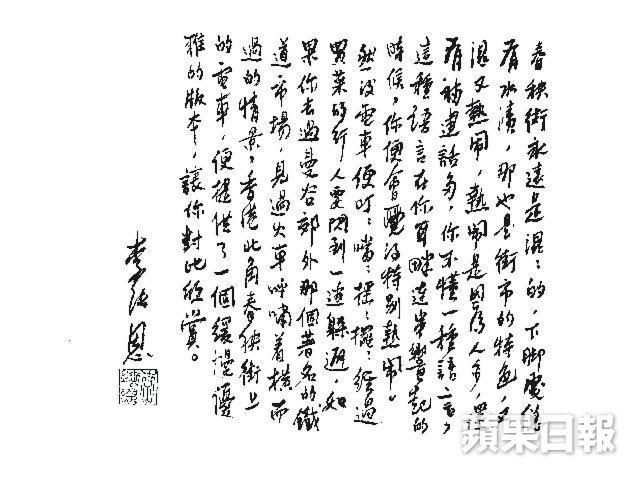 春秧街永遠是濕濕的，下脚處總
有水漬，那也是街市的特色，又
濕又熱鬧，熱鬧是因為人多，
有福建話多，你不懂一種語言，
這種語言在你耳畔連串響起的
時候，你便會覺得特別熱鬧。
然後電車便叮叮噹噹搖搖擺擺經過
買菜的行人要閃到一邊躲避，如
果你去過曼谷郊外那個著名的鐵
道市場，見過火車呼嘯着橫而
過的情景，香港北角春秧街上
的電車，便提供了一個緩慢優
雅的版本，讓你對此欣賞。
李純恩
蘋果日報